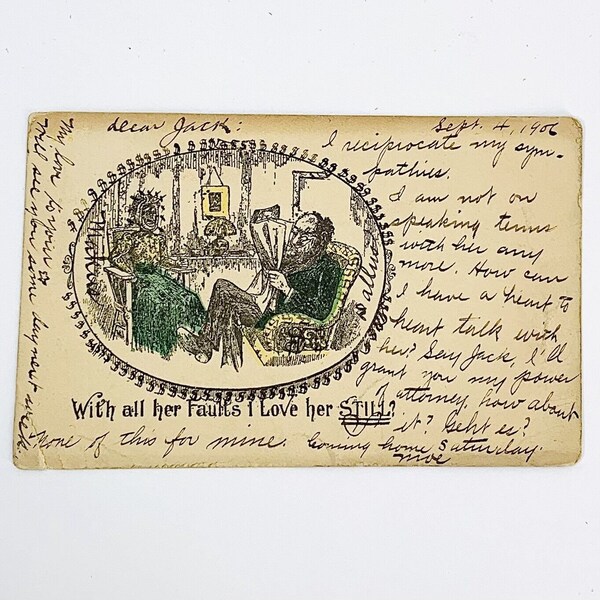 Dear Jack:
Sept. 4, 1906
I reciprocate my sym-
pathies.
I am not on
speaking terms
with her any
more. How can
I have a heart to
heart talk with
her? Say Jack, I'll
grant you my power
of attorney, how about
it? Geht es?
Coming home Saturday.
Moe
With all her Faults I Love her STILL?
None of this for mine.
My love to yours &
Will see you some day next week.